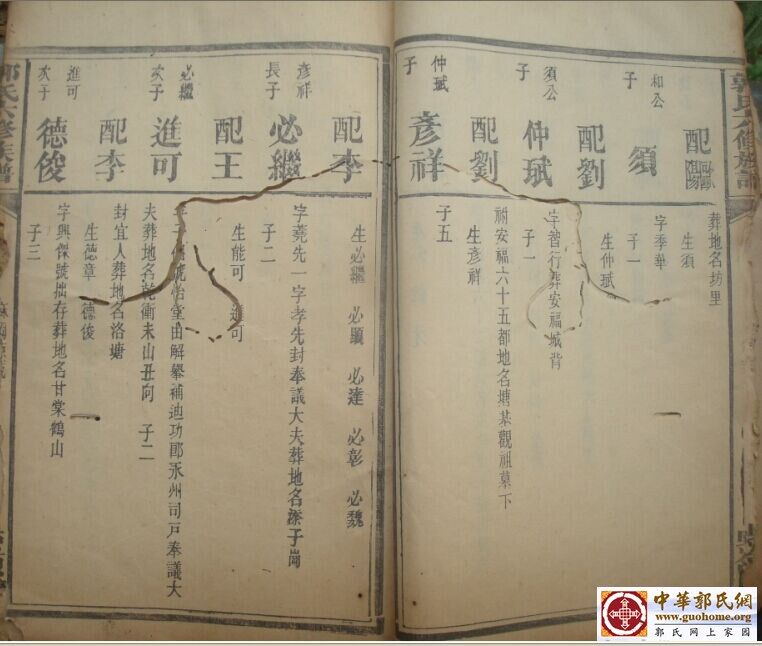 郭氏六修族譜
配歐陽
葬地名坊里
和公
子
須
生須
字季華
子一
配劉
生仲珷
須公
子
仲珷
字智行葬安福城背
子一
配劉
祔安福六十五都地名塘
觀祖墓下
生彥祥
仲珷
子
彥祥
子五
配李
生必繼 必顯 必達 必彰 必魏
彥祥
長子
必繼
字堯先一字孝先封奉議大夫葬地名
子崗
子二
配王
生能可 進可
必繼
次子
進可
號怡堂由解舉補迪功郎永州司戶奉議大
夫葬地名乾衝未山丑向 子二
配李
封宜人葬地名洛塘
生德章 德俊
進可
次子
德俊
字興傑號拙存葬地名甘棠鶴山
子三
郭氏六修族譜
中華郭氏網
www.guohome.org
郭氏網上家園